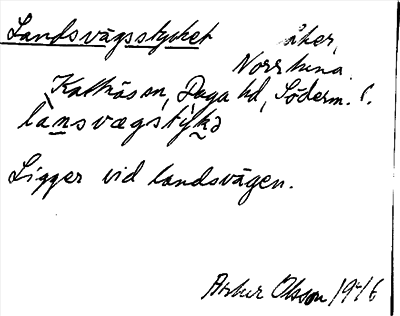 Landsvägsstycket åker,
Norrtuna.
Kattnäs sn, Daga hd, Söderm. l.
lànsvægstýkə
Ligger vid landsvägen.
Artur Olsson 1946